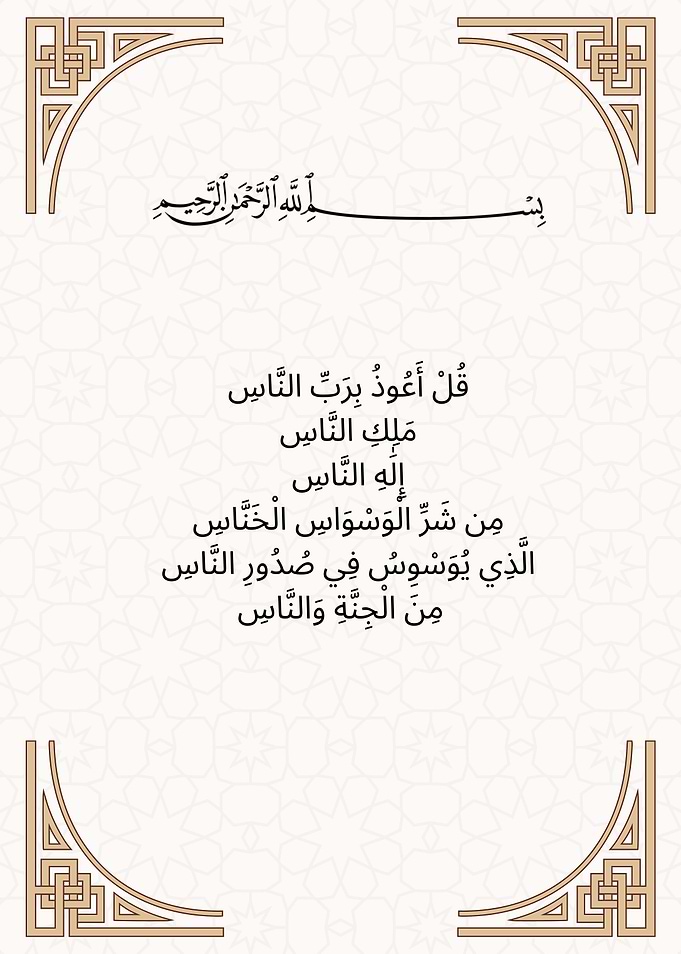 بِسْمِ ٱللَّهِ ٱلرَّحْمَٰنِ ٱلرَّحِيمِ
قُلْ أَعُوذُ بِرَبِّ النَّاسِ
مَلِكِ النَّاسِ
إِلَٰهِ النَّاسِ
مِن شَرِّ الْوَسْوَاسِ الْخَنَّاسِ
الَّذِي يُوَسْوِسُ فِي صُدُورِ النَّاسِ
مِنَ الْجِنَّةِ وَالنَّاسِ